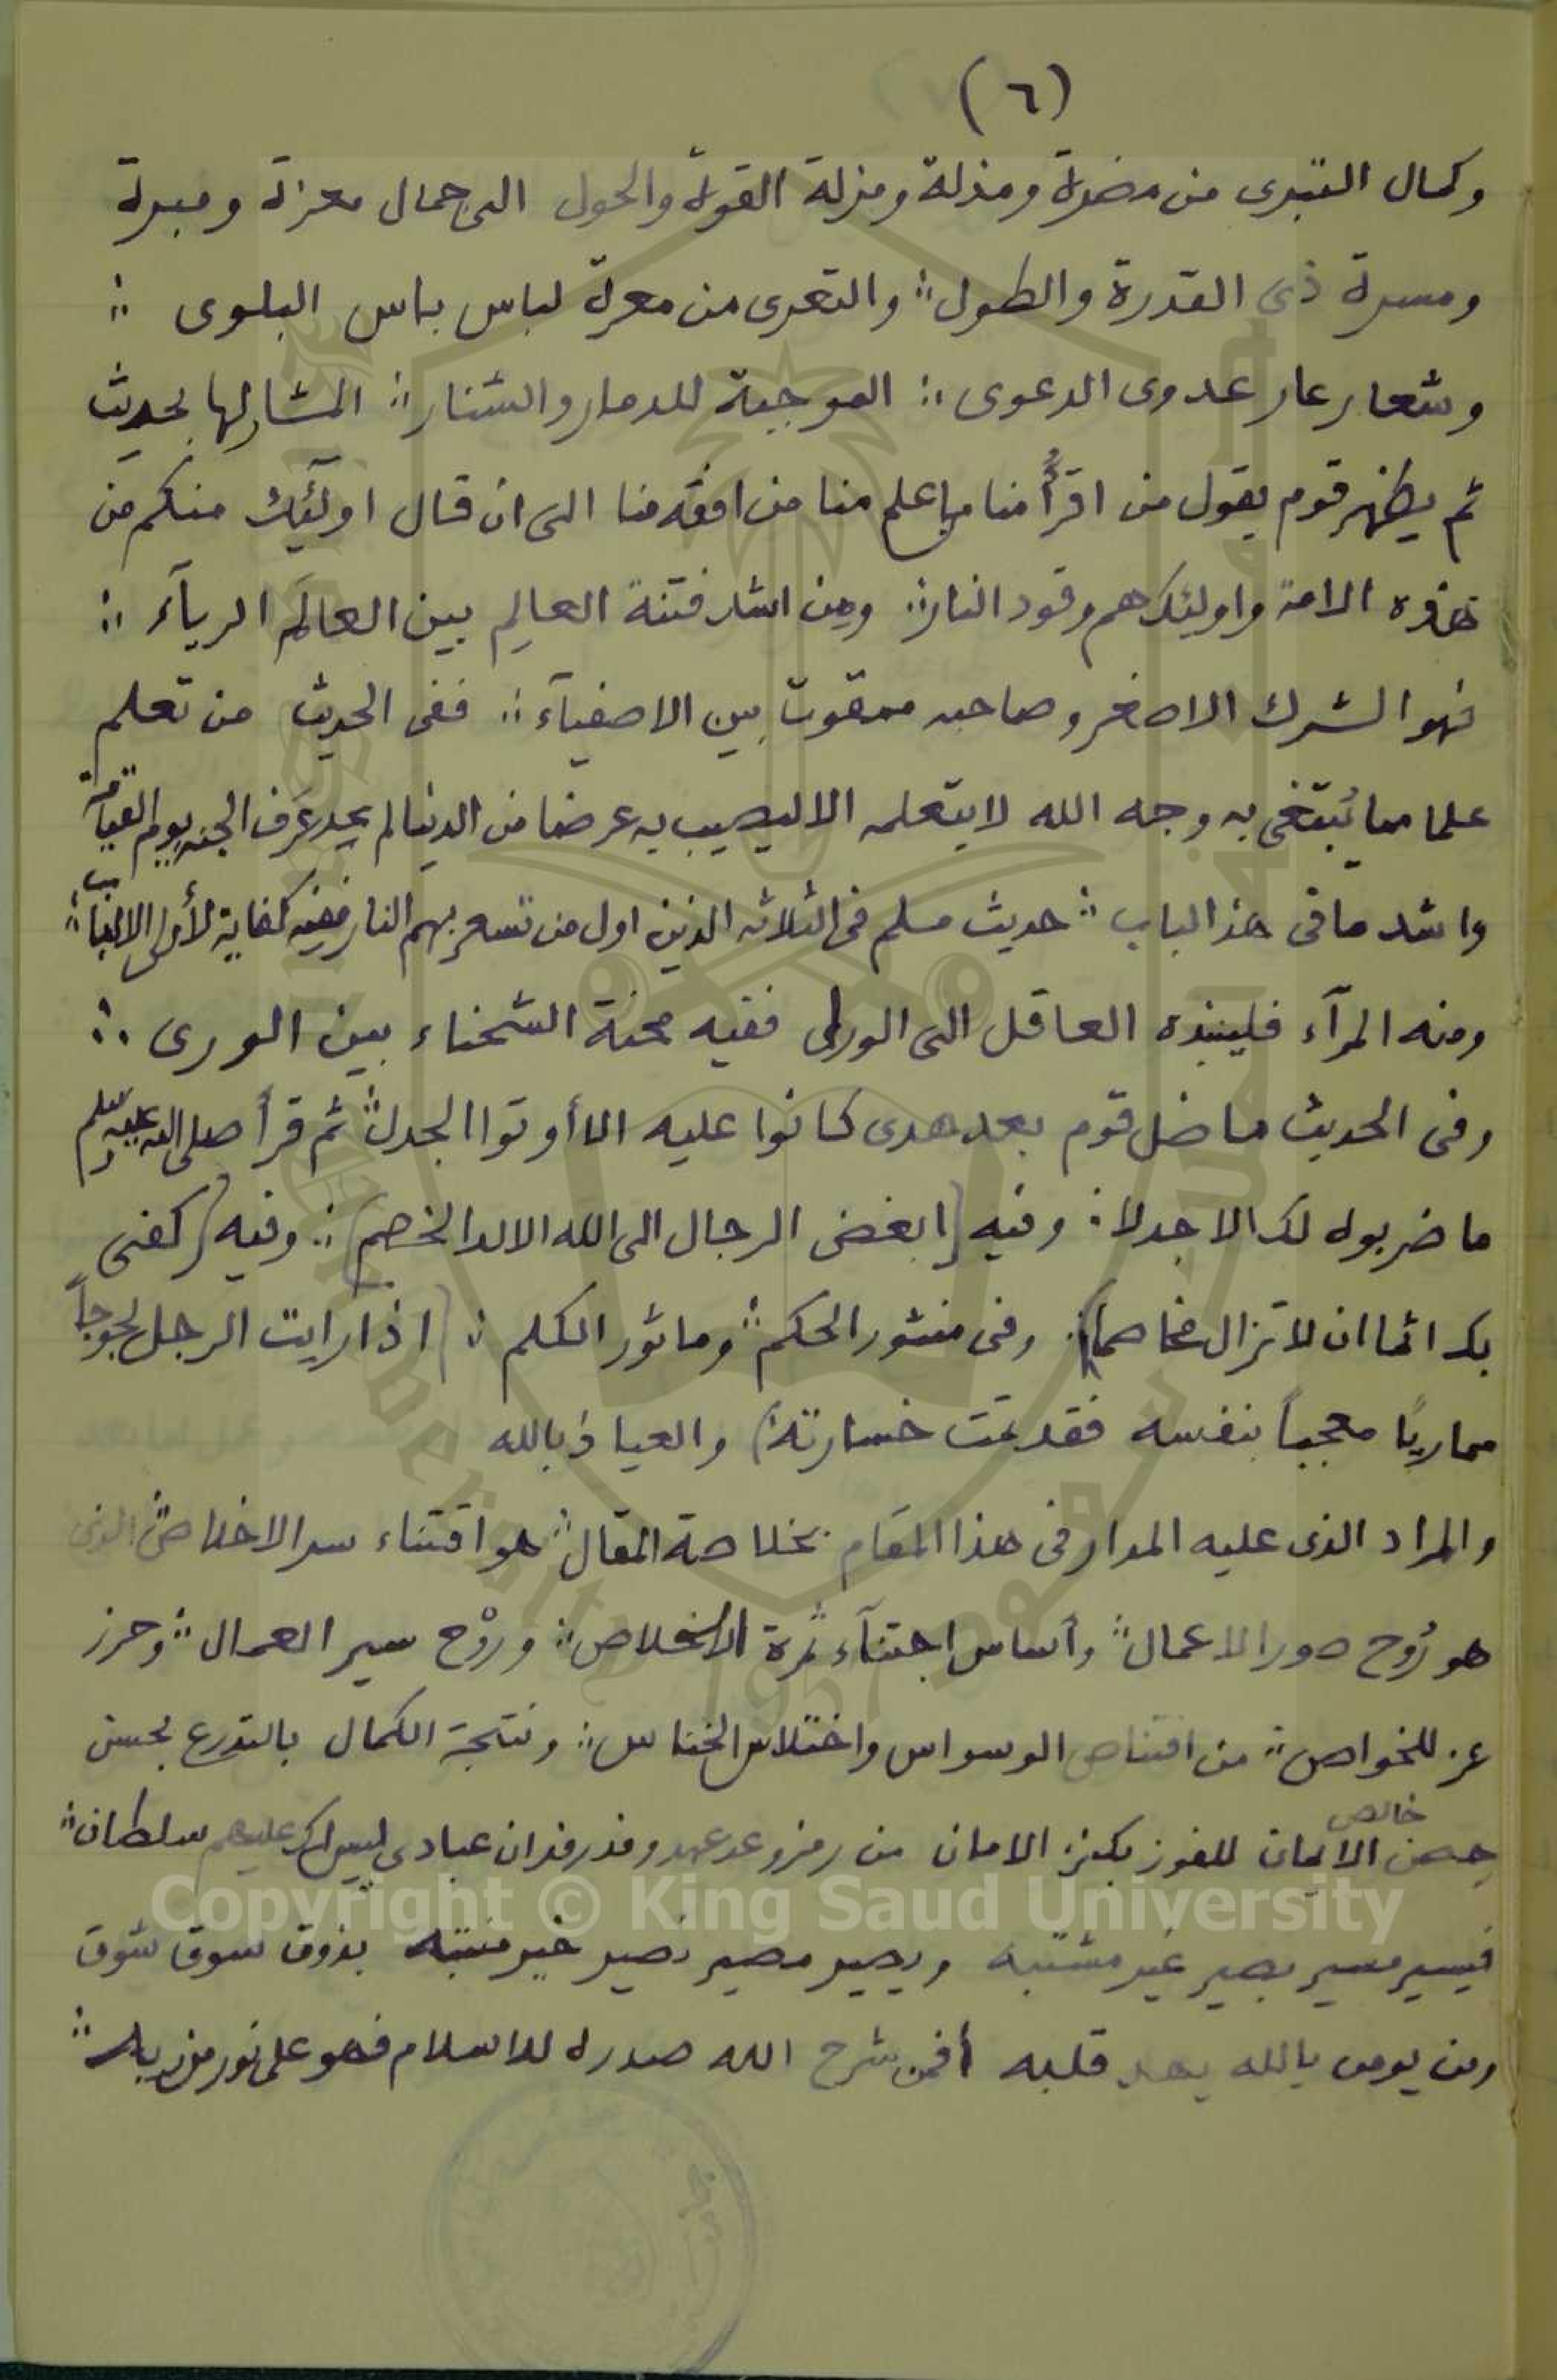 (٦)
وكمال التبرى من مضرة ومذلة ومزلة القوة والحول الى جمال معزة ومبرة
ومسرة ذى القدرة والطول ؛ والتعرى من معرة لباس باس البلوى ؛
وشعار عار عدوى الدعوى ؛ الموجبة للدمار والشنار ؛ المشار لها بحديث
ثم يظهر قوم يقول من اقرأُ منا من اعلم منا من افقه منا الى ان قال اولٓئك منكم من
هذه الامة واولئك هم وقود النار ؛ ومن اشد فتنة العالِم بين العالَم الريآء ؛
فهو الشرك الاصغر وصاحبه ممقوت بين الاصفيآء ؛ ففى الحديث من تعلم
علما مما يُبتغى به وجه الله لا يتعلمه الا ليصيب به عرضا من الدنيا لم يجد عَرف الجنه يوم القيامة
واشد ما فى هذ الباب ؛ حديث مسلم فى الثلاثه الذين اول من تسعر بهم النار ففيه كفاية لأولى الالباب ؛
ومنه المرآء فلينبذه العاقل الى الورى ففيه محنة الشحناء بين الورى ؛
وفى الحديث ما ضل قوم بعد هدى كانوا عليه الا أوتوا الجدل ؛ ثم قرأ صلى الله عليه وسلم
ما ضربوه لك الا جدلا ؛ وفيه (ابغض الرجال الى الله الالد الخصم) ؛ وفيه (كفى
بك اثما ان لا تزال مخاصما) ؛ وفى منثور الحكم ؛ وماثور الكلم ؛ (اذا رايت الرجل لجوجاً
ممارياً معجباً بنفسه فقد تمت خسارته) والعياذ بالله
والمراد الذى عليه المدار فى هذا المقام بخلاصة المقال ؛ هو اقتناء سر الاخلاص ؛ الذى
هو رُوح صور الاعمال ؛ وأساس اجتنآء ثمرة الاخلاص ؛ ورَوْح سير العمال ؛ وحرز
عز للخواص ؛ من اقتناص الوسواس واختلاس الخناس ؛ ونتيجة الكمال بالتدرع بحسن
حصن خالص الايمان للفوز بكنز الامان من رمز وعد عهد ان عبادى ليس لك عليهم سلطان ؛
فيسير مسير بصير غير مشتبه ويصير مصير نصير خبير منتبه بذوق سوق شوق
ومن يومن بالله يهد قلبه أفمن شرح الله صدره للاسلام فهو على نور من ربه ؛
Copyright © King Saud University